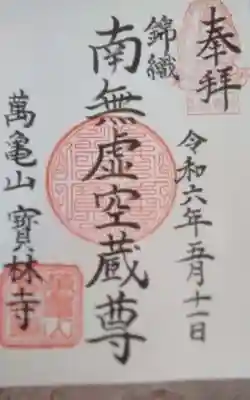 奉拝
令和六年五月十一日
錦織
南無虚空蔵尊
萬亀山 寶林寺